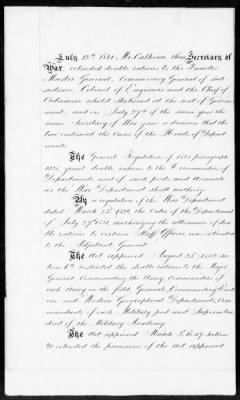 July 19th 1821 Mr. Calhoun, then Secretary of
War, extended double rations to the Quarter
Master General, Commissary General of Sub
sistence, Colonel of Engineers and the Chief of
Ordnance whilst Stationed at the seat of Govern
ment, and on July 27th of the same year the
same Secretary of War gave a decision that the
law embraced the Cases of the Heads of Depart
ments.
The General Regulations of 1825 paragraph
grant double rations to the Commanders of
Departments and of such posts and Arsenals
as the War Department shall authorize
By a regulation of the War Department
dated March 25th the Order of the Department
of July 27th 1821, authorizing the allowance of dou
ble rations to certain Staff Officers, was extended
to the Adjutant General.
The Act approved August 23d 1842 Sec
tion 6th restricted the double rations to the Major
General Commanding the Army, Commanders of
each Army in the field, Generals Commanding East
ern and Western Geographical Departments, Com
mandants of each Military post and Superinten
dent of the Military Academy.
The Act approved March 3. Section
extended the provisions of the act approved